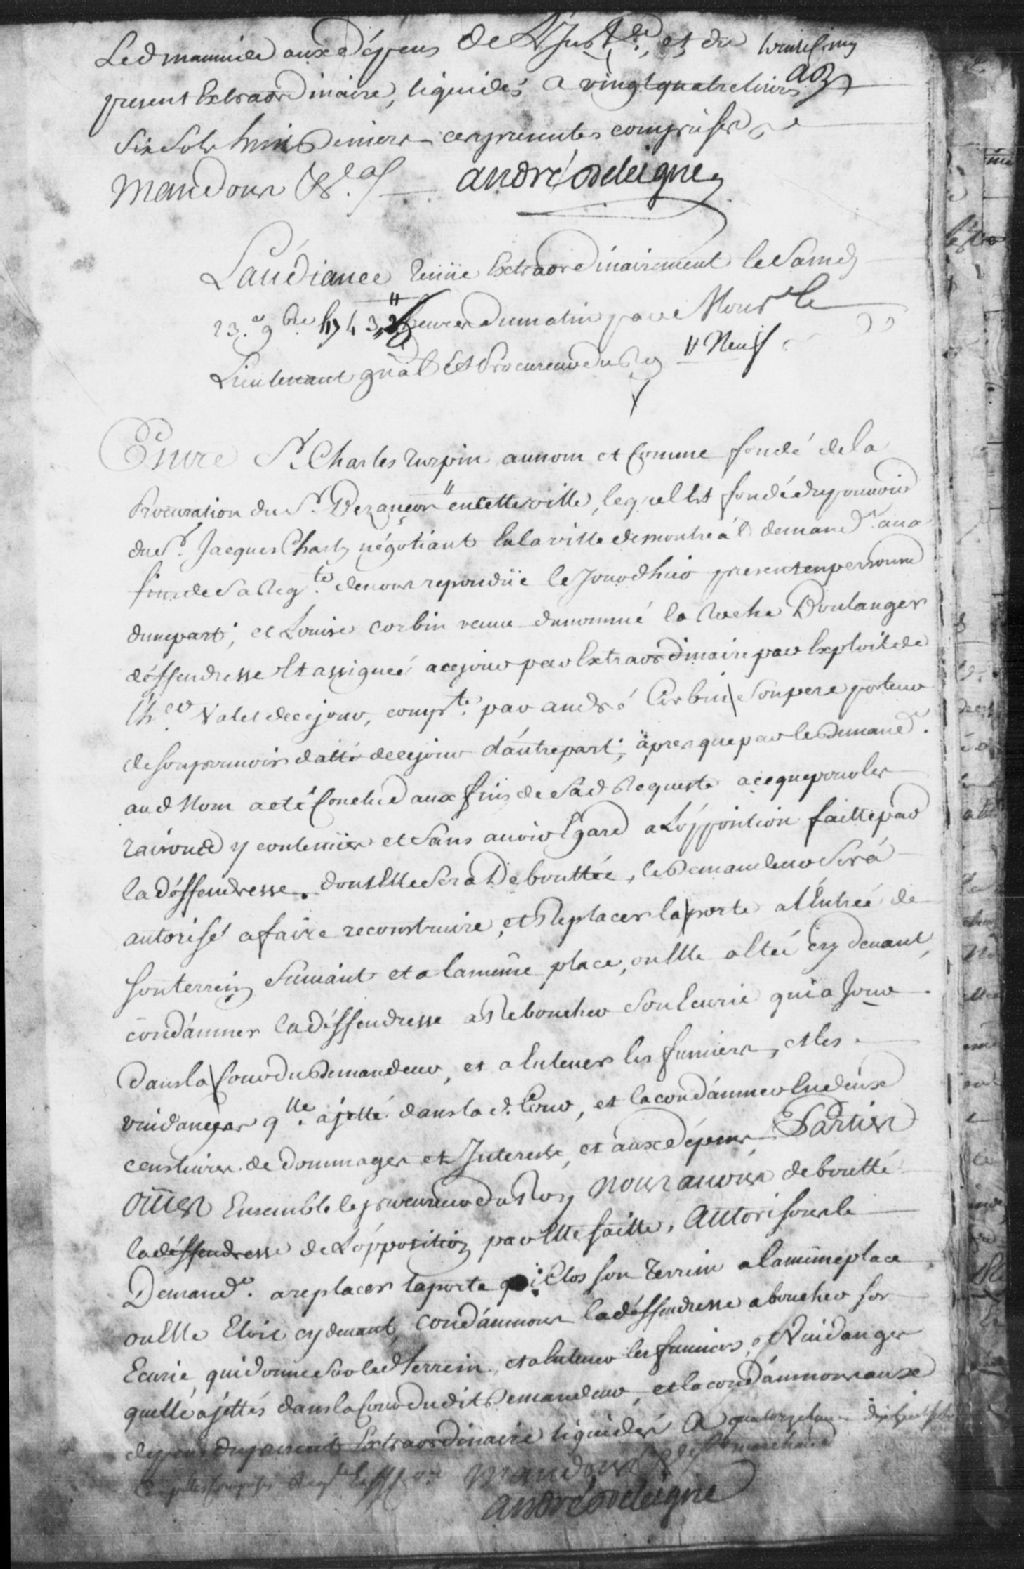 Led mannie aux dépens de L'Inste, et du
present Extraordinaire, liquidés a vingt quatre livres
Six Sols huit Deniers ces presentes comprises
Mandons &.a/. André Deleigne
L'audiance tenüe Extraordinairement le Samedy
23.e 9bre 1743 heures du matin par Nous le
Lieutenant gñal Et Procureur du Roy " Neuf
Entre Sr. Charles turpin au nom et Comme fondé de la
Procuration du Sr. Bezançon en cette ville, lequel Est fondé de pouvoir
du Sr. Jacques Charly négotiant En la ville de montreál demandr. aux
fins de Sa Reqte. de nous repondüe le Jourdhuy present en personne
d'une part; et Louise corbin veuve du nommé la Roche Boulanger
déffendresse Et assignée a ce jour par Extraordinaire par Exploit de
Valet de ce jour, compte. par andré Corbin Son pere porteur
de son pouvoir datté de ce jour d'autre part; äpres que par le Demandr.
aud Nom a eté Conclud aux fins de Sad Requeste a ce que pour les
raisons y contenües et Sans avoir Egard a L'opposition faitte par
la déffendresse. dont Elle Sera Deboutteé, le Demandeur Sera
autorisé a faire reconstruire, et Replacer la porte a l'Entreé de
son terrein Suivant et a la même place, ou Elle a Eteé cy devant,
condámner la déffendresse a Reboucher Son Ecurie qui a Jour
dans la Cour du Demandeur, et a Enlever les fumiers, et les
vuidanges qlle. a jetté dans lad. Cour, et la condámner En deux
cens livres de dommages et Interests, et aux dépens Parties
oüies Ensemble le procureur du Roy Nous avons deboutté
la déffendresse de L'opposition par Elle faitte, Autorisons le
Demandr. a replacer la porte qui Clos son terrein a la mïme place
ou Elle Etoit cy devant, condámnons la déffendresse a boucher son
Ecurie qui donne Sur led terrein, et a Enlever les fumiers, et Vuidanges
quelle a jettés dans la Cour dudit Demandeur, et la condámnons aux
depens du present Extraordinaire liquidés a quatorze livres dix huit sols
Mandons
André Deleigne